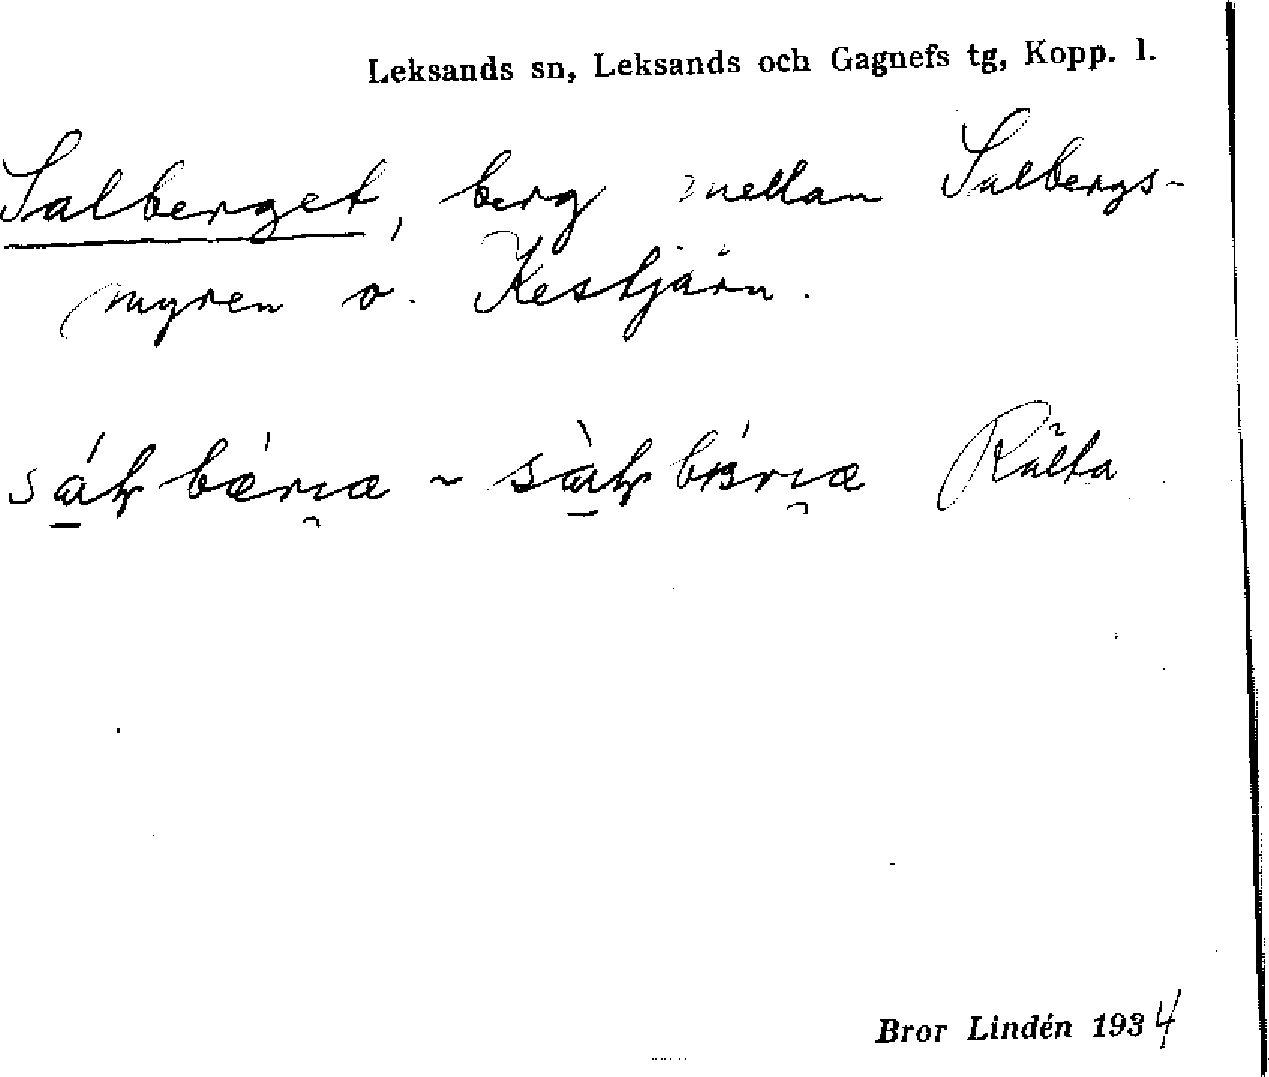 Leksands sn, Leksands och Gagnefs tg, Kopp. l.
Salberget, berg mellan Salbergs-
myren o. Kestjärn.
Rälta
Bror Lindén 1934